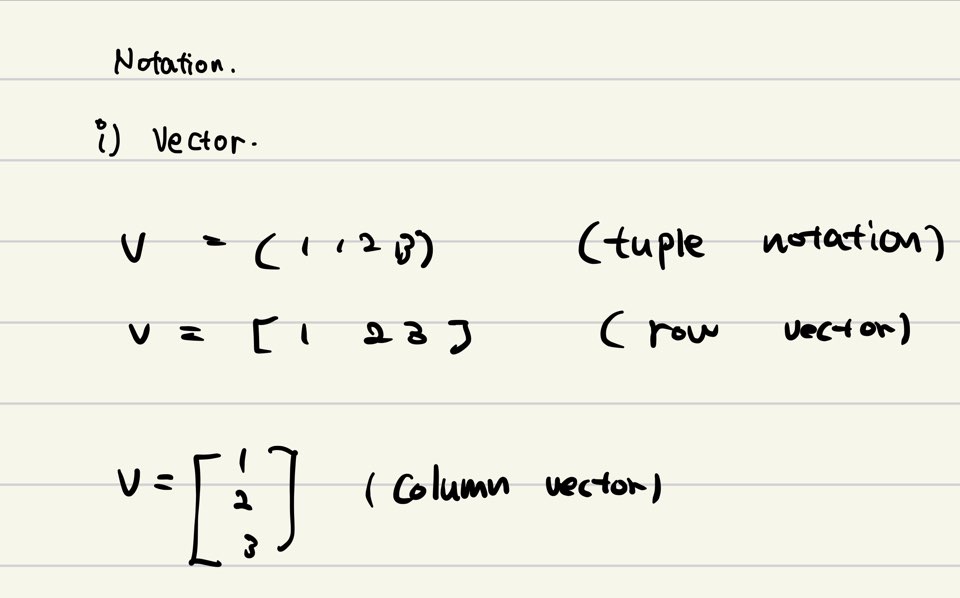 Notation.
i) Vector.
V = (1, 2 3) (tuple notation)
V = [1 2 3] (row vector)
V = [1 2 3] (column vector)